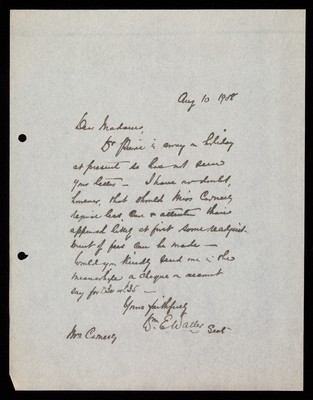 Aug 10 1908
Dear Madam,
Dr Peirce is away on holiday
at present so has not seen
your letter – I have no doubt,
however, that should Miss Carnealy
require less care & attention than
appeared likely at first some readjust-
ment of fees can be made –
Would you kindly send me in the
meanwhile a cheque on account
say for £30 or £35 –
Yours faithfully
Wm E Waller Sect.
Mrs